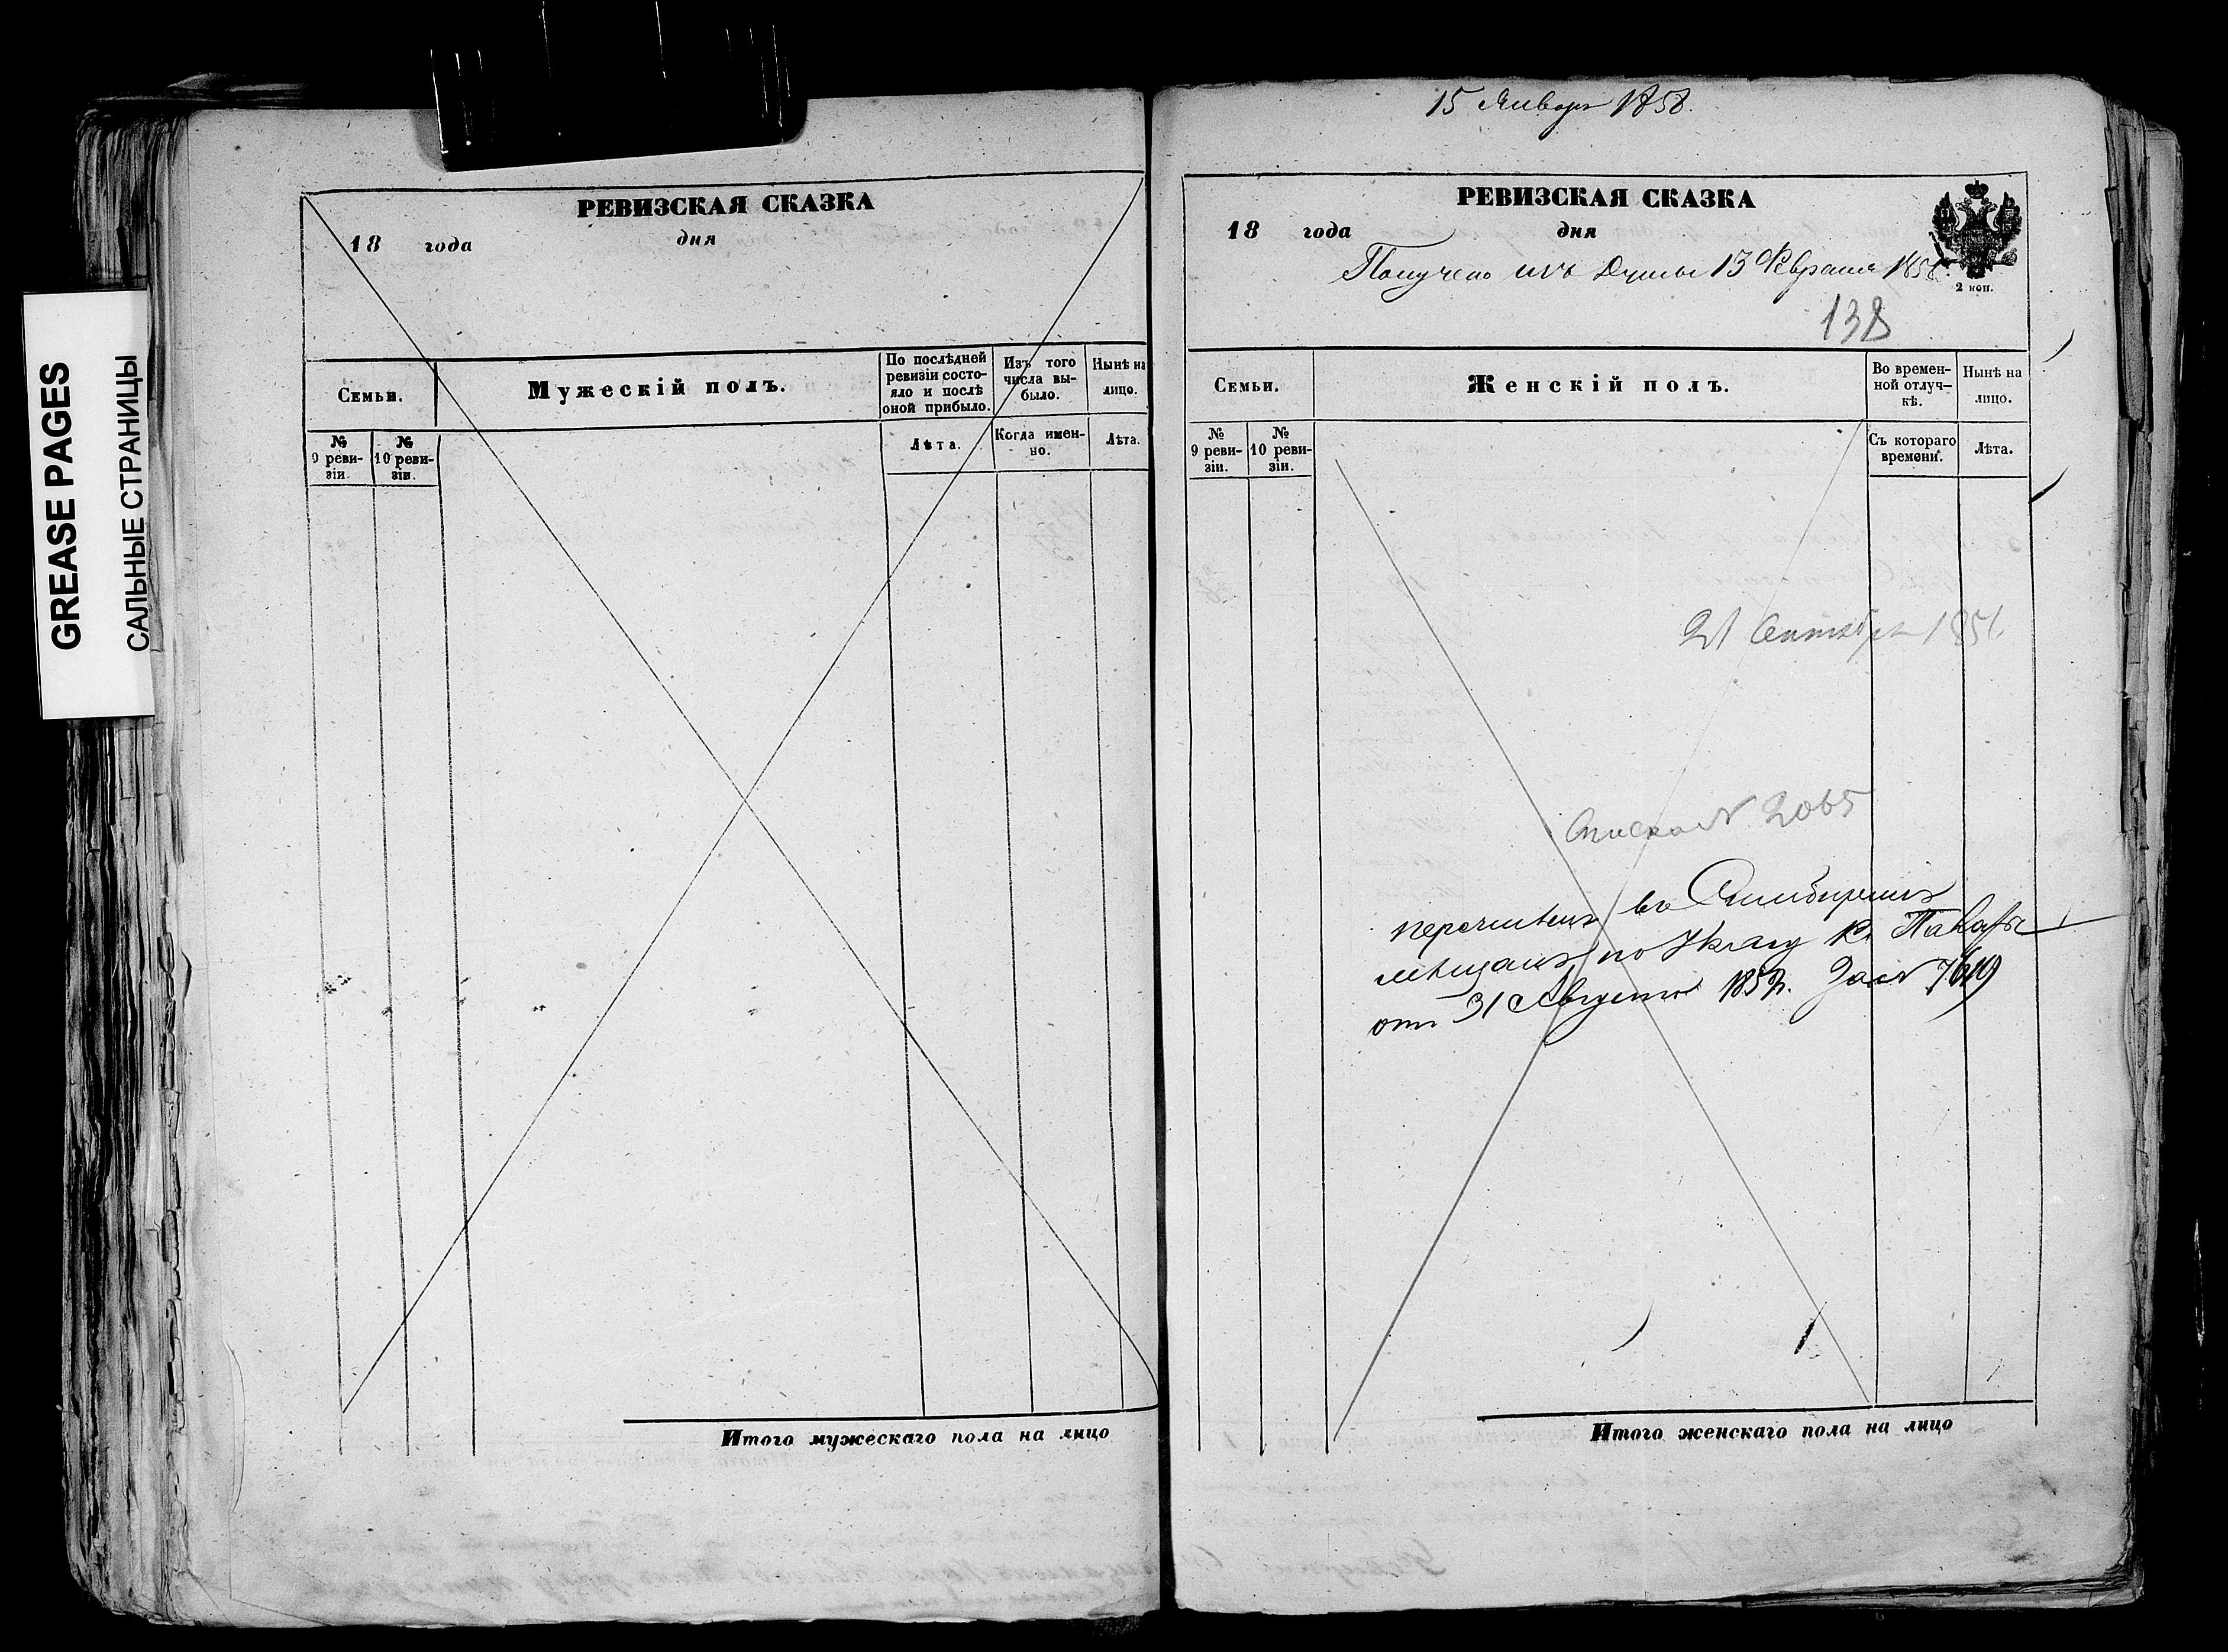 GREASE PAGES
САЛЬНЫЕ СТРАНИЦЫ
РЕВИЗСКАЯ СКАЗКА
18 года дня
Семьи.
Мужескій полъ.
По послѣдней
ревизіи состо-
яло и послѣ
оной прибыло.
Изъ того
числа вы-
было.
Нынѣ на
лицо.
№
9 реви-
зіи.
№
10 реви-
зіи.
Лѣта.
Когда имен-
но.
Лѣта.
Итого мужескаго пола на лицо
15 Января 1858.
РЕВИЗСКАЯ СКАЗКА
18 года дня
Получено изъ Думы 13 Февраля 1858.
2 коп.
138
Семьи.
Женскій полъ.
Во времен-
ной отлуч-
кѣ.
Нынѣ на
лицо.
№
9 реви-
зіи.
№
10 реви-
зіи.
Съ котораго
времени.
Лѣта.
21 Сентября 185
№ 2065
перечисленъ въ Симбирскъ
мѣщанъ по Указу К. Палаты
отъ 31 Августа 185 за № 7619
Итого женскаго пола на лицо